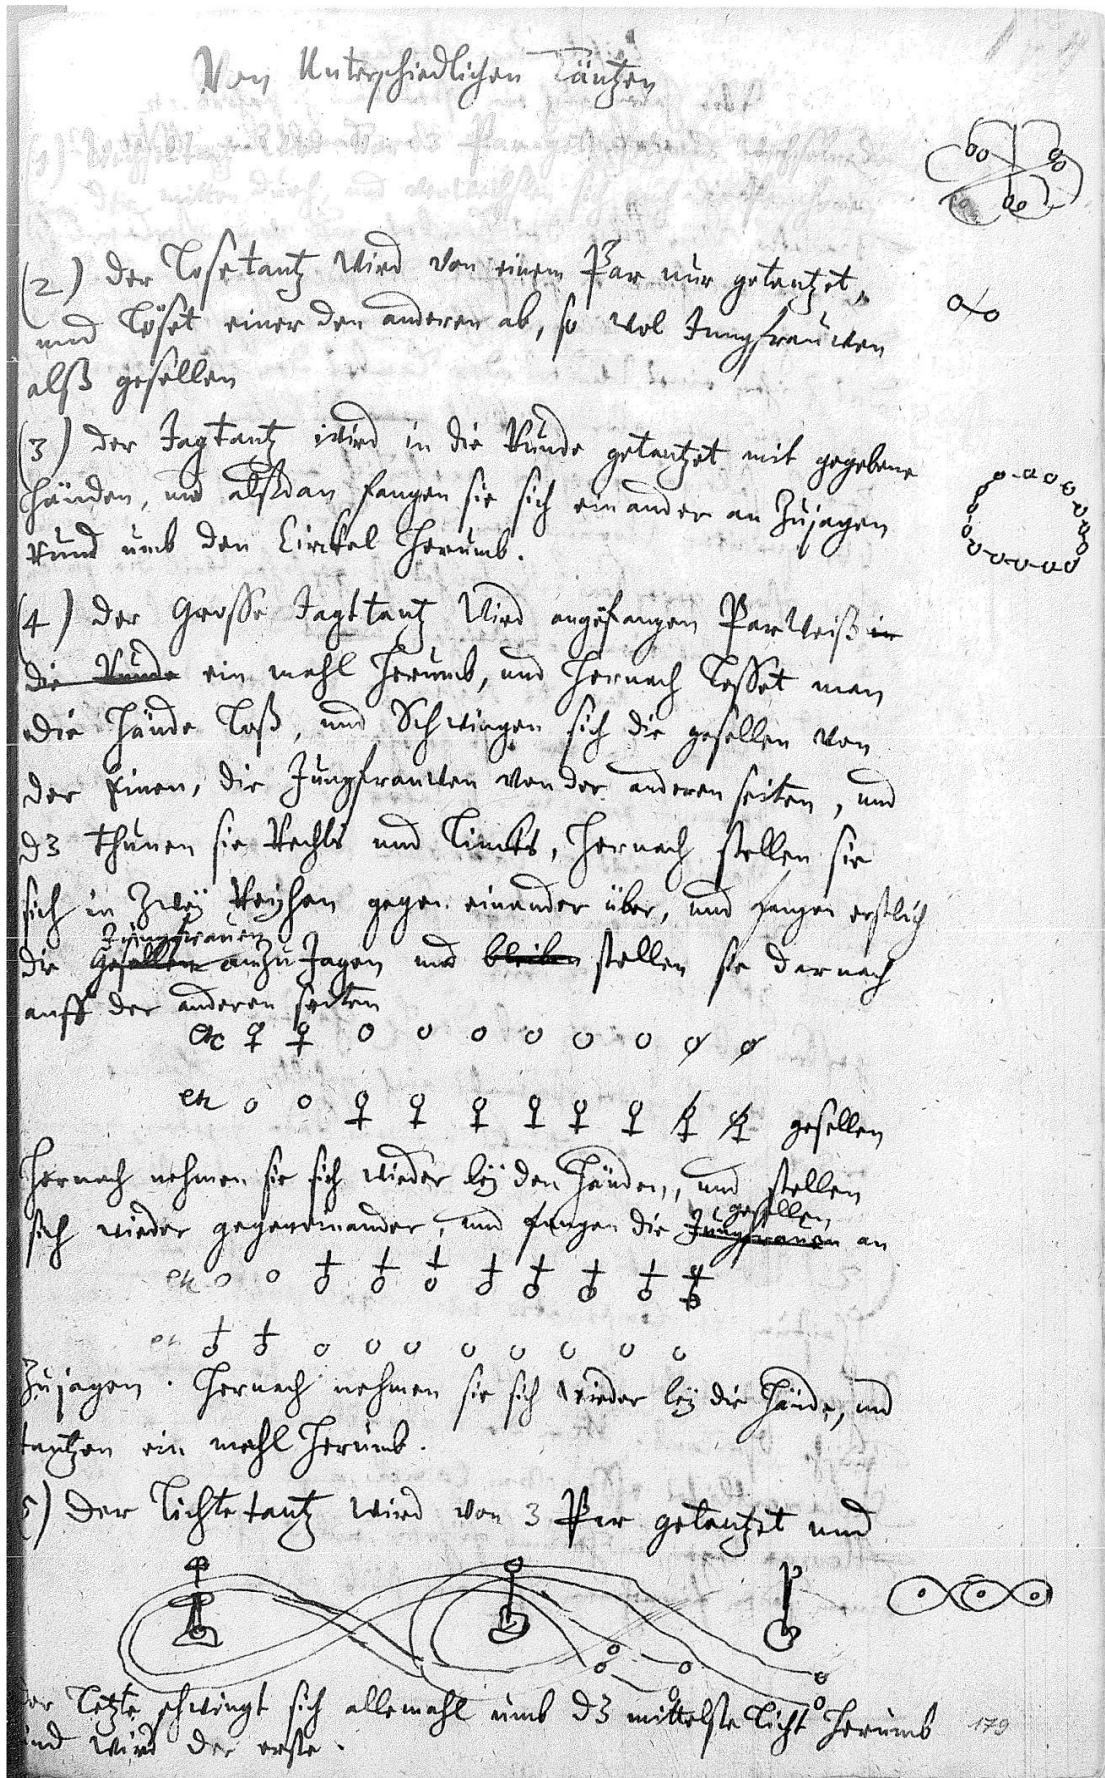 Von Unterschiedlichen Täntzen
(2) der Losetantz Wird von einem Par nur getantzet,
und Löset einer den anderen ab, so wol Jungfrauwen
alß gesellen
(3) der Jagtantz wird in die Runde getantzet mit gegebene
Händen, und alßdan fangen sie sich einander an Zujagen
Rund umb den Circkel Herumb.
(4) der Grosse Jagttantz Wird angefangen ParWeiß in
die Runde ein mahl Herumb, und Hernach Lesset man
die Hände Loß, und Schwingen sich die gesellen von
der Einen, die Jungfrauwen von der anderen seiten, und
d3 thunen sie Rechts und Lincks, Hernach stellen sie
sich in Zwey Reyhen gegen einander über, und fangen erstlich
Jungfrauen
die Gesellen anzuJagen und bleiben stellen sie darnach
auff der anderen seiten
etc
etc gesellen
Hernach nehmen sie sich wieder bey den Händen, und stellen
gesellen
sich wieder gegeneinander, und fangen die Jungfrauen an
etc
etc
Zujagen. Hernach nehmen sie sich wieder bey die Hände, und
tantzen ein mahl Herumb.
5) Der Lichtetantz wird von 3 Par getantzet und
der Letzte schwingt sich allemahl umb d3 mittelste Licht Herumb 179
und wird der erste.